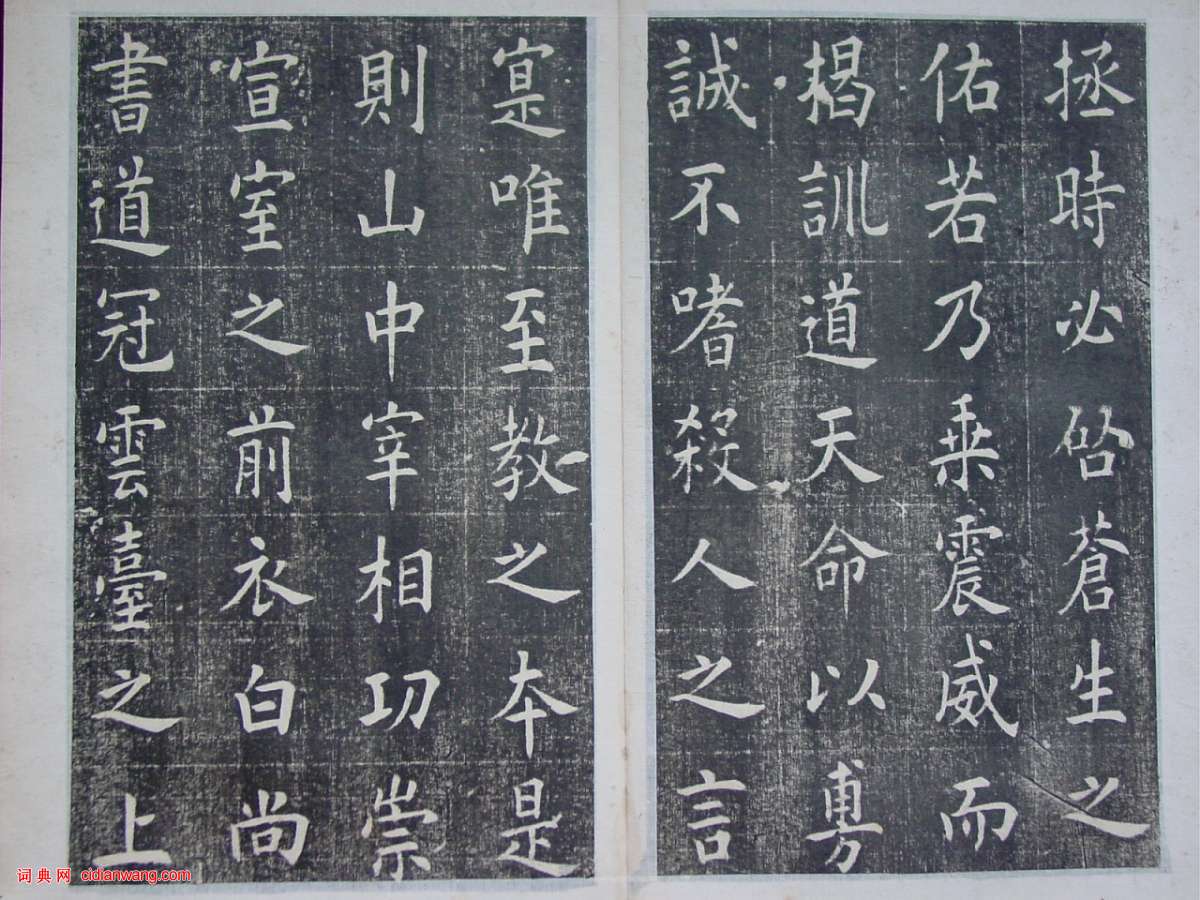 拯時必啓蒼生之
佑若乃乗震威而
揭訓道天命以旉
誠不嗜殺人之言
寔唯至教之本是
則山中宰相功崇
宣室之前衣白尚
書道冠雲臺之上
词典网 cidianwang.com